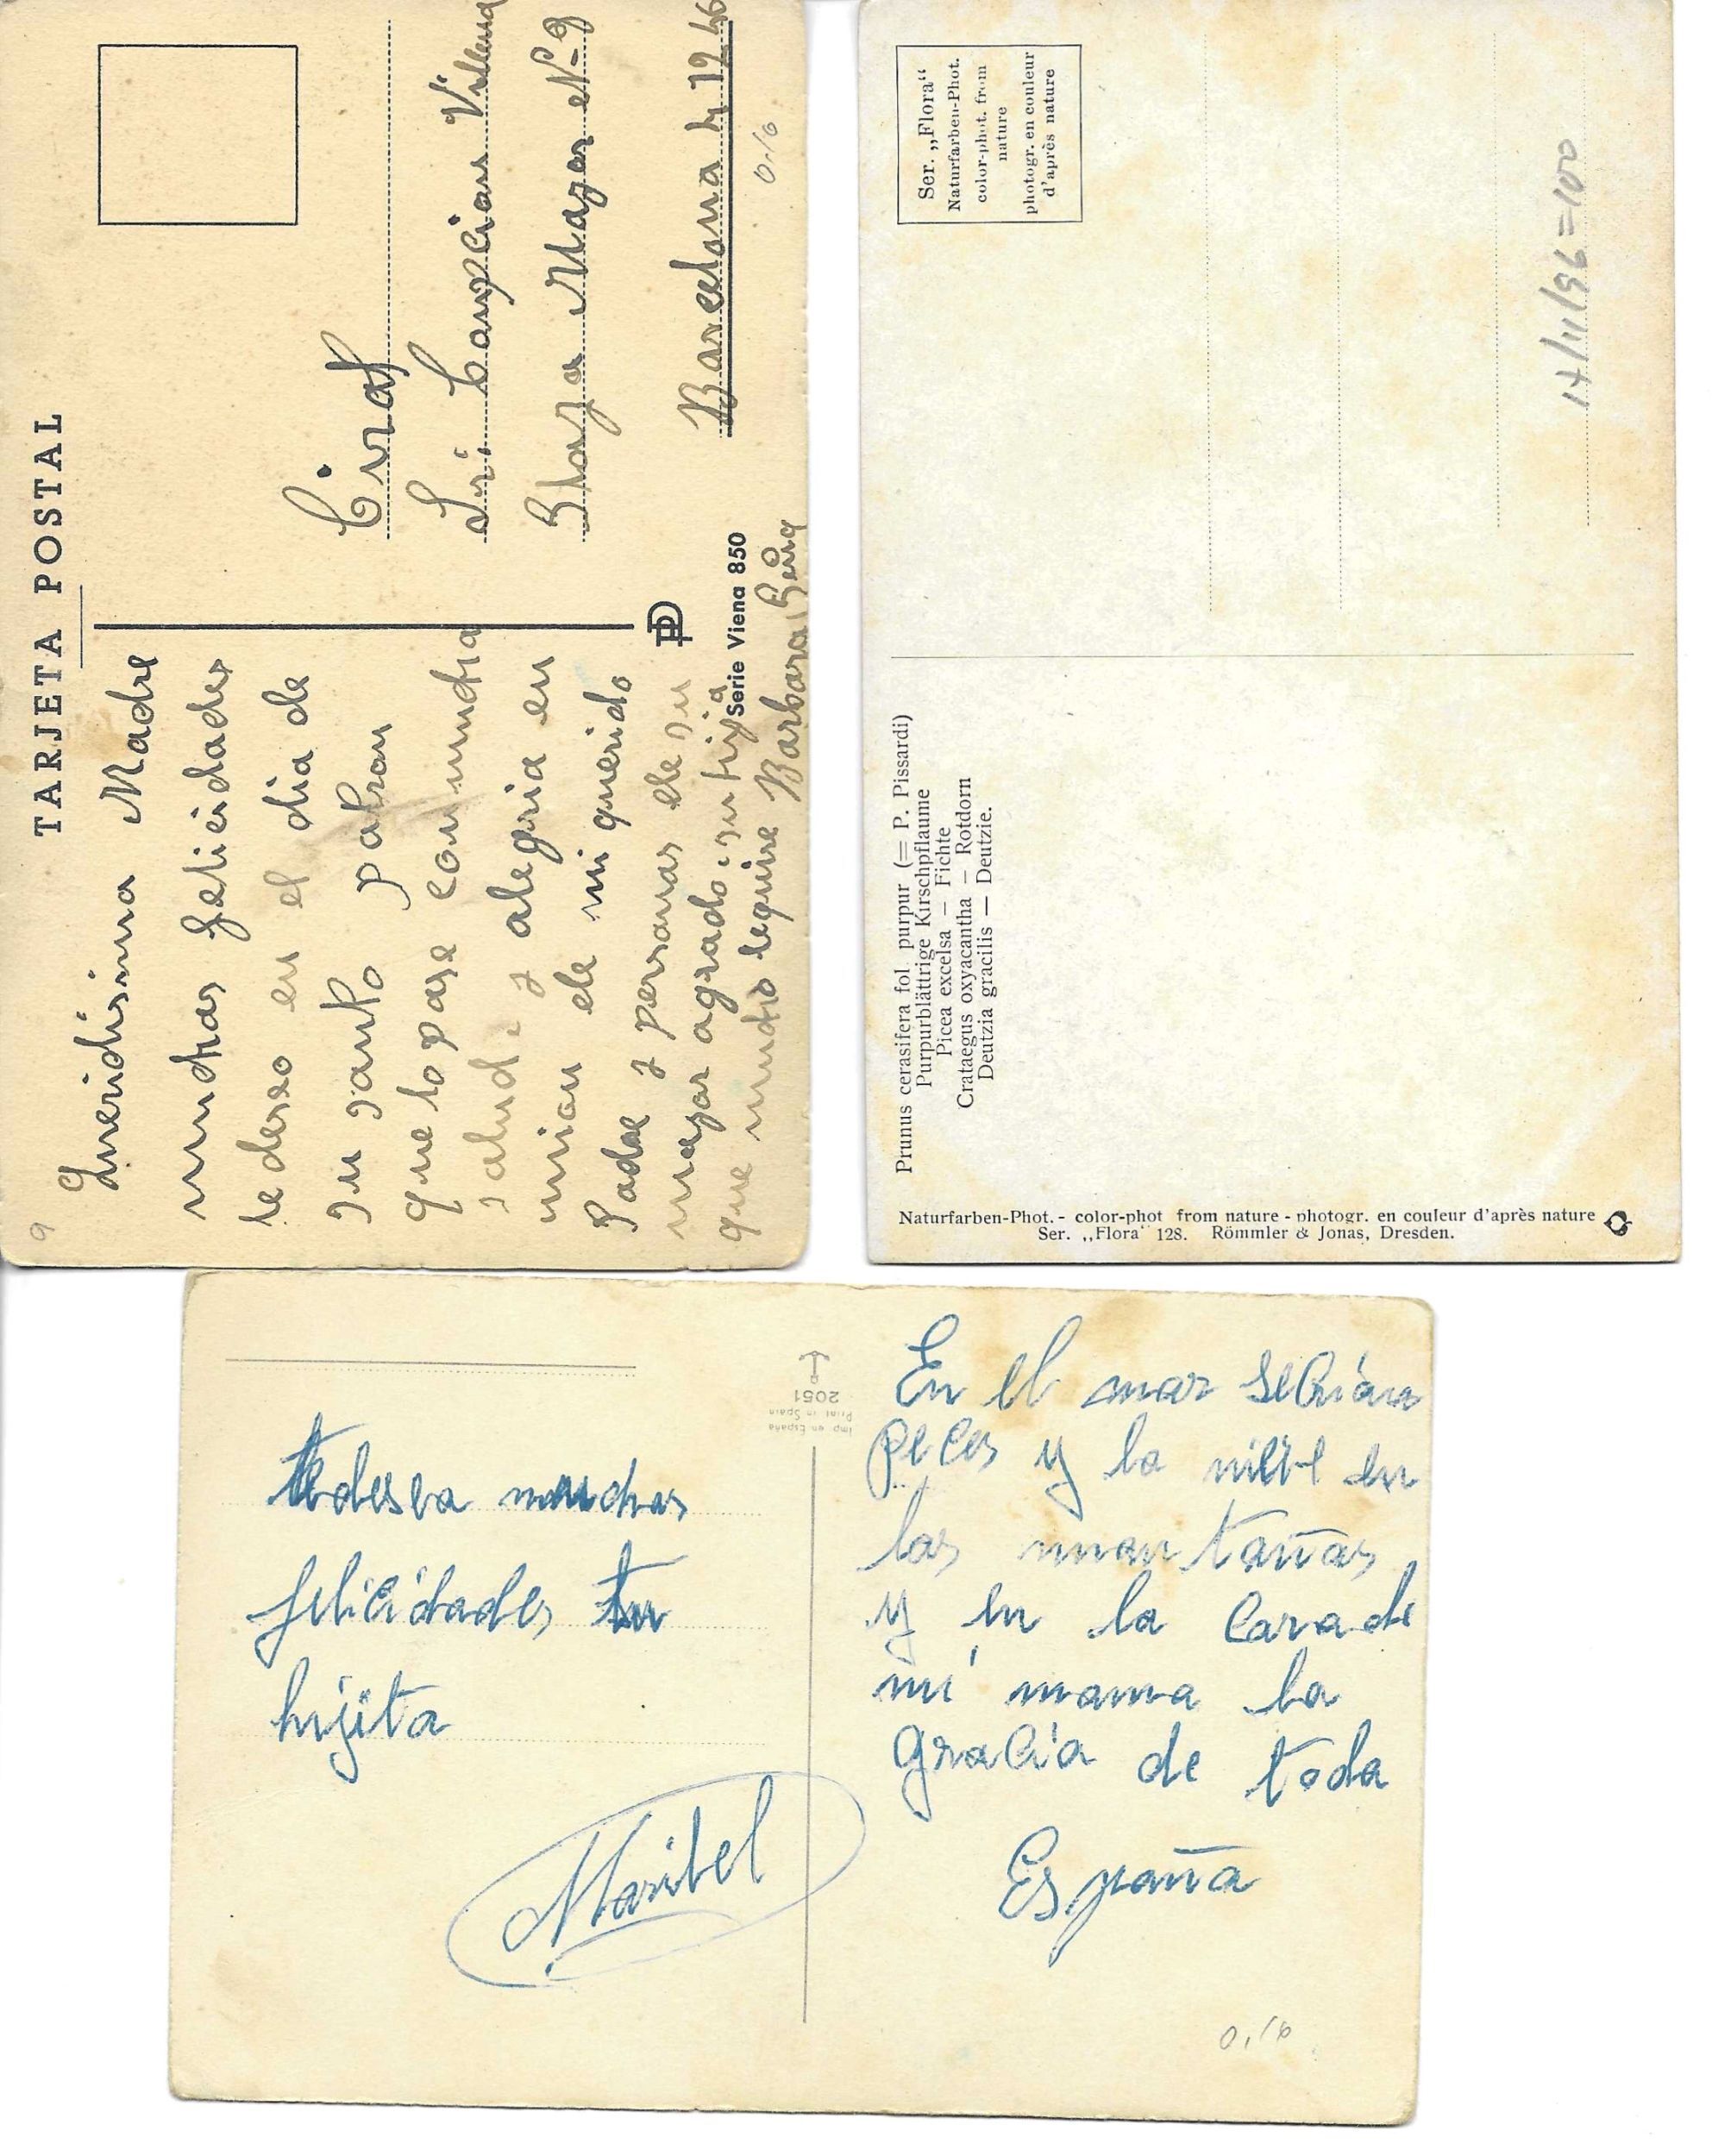 TARJETA POSTAL
9
Queridisima Madre
muchas felicidades
le deseo en el dia de
su santo patron
que lo pase con mucha
salud. y alegria en
union de mi querido
Padre y personas de su
mayor agrado. su hija
que mucho le quiere Barbara
Cirat
Sri. Campcian
Plaza Mayor N-9
Barcelona 4 1946
0,16
Serie Viena 850
Ser. „Flora“
Naturfarben-Phot.
color-phot. from
nature
photogr. en couleur
d'après nature
14/11/96=100
Prunus cerasifera fol purpur (= P. Pissardi)
Purpurblättrige Kirschpflaume
Picea excelsa — Fichte
Crataegus oxyacantha — Rotdorn
Deutzia gracilis — Deutzie.
Naturfarben-Phot. - color-phot from nature - photogr. en couleur d'après nature
Ser. „Flora“ 128. Römmler & Jonas, Dresden.
te desea muchas
felicidades tu
hijita
Maribel
2051
Print in Spain
Imp en España
En el mar se crian
peces y la nieve en
las montañas
y en la cara de
mi mama la
gracia de toda
España
0,16